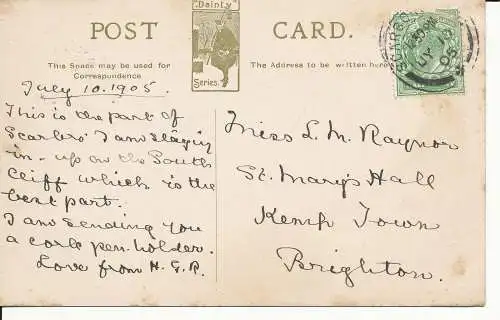 POST CARD.
Dainty
Series.
This Space may be used for
Correspondence
The Address to be written here
July 10. 1905.
This is the part of
Scarbro' I am staying
in - up on the South
Cliff which is the
best part.
I am sending you
a cork pen-holder.
Love from H. G. R.
Miss L. M. Raynor
St. Mary's Hall
Kemp Town
Brighton.
JY
05